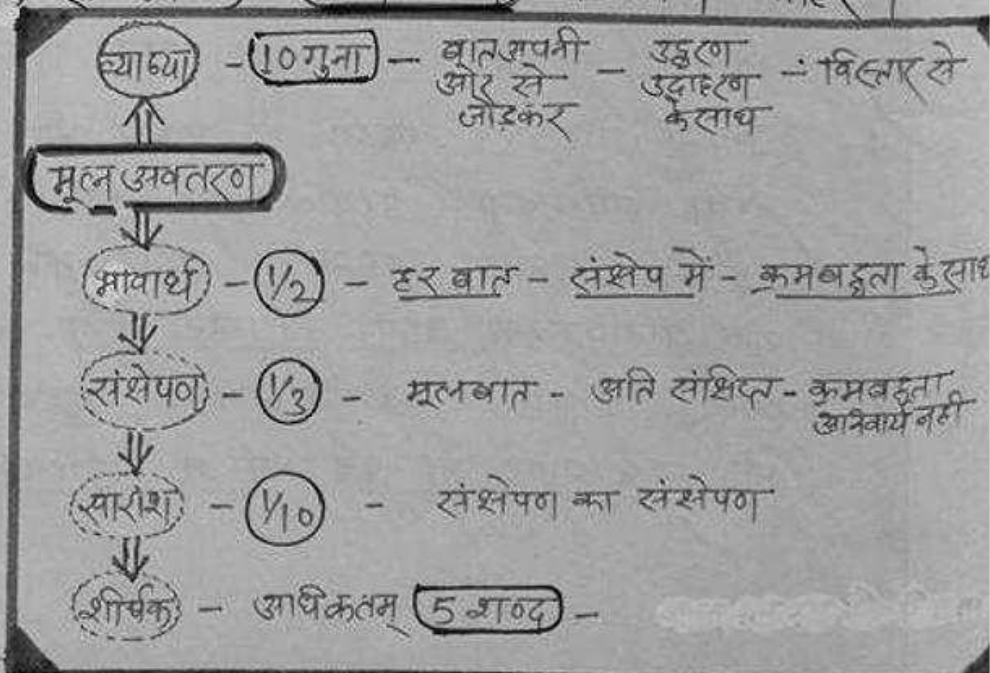 व्याख्या - 10 गुना - बात अपनी ओर से जोड़कर - उद्धरण उदाहरण के साथ - विस्तार से
मूल अवतरण
भावार्थ - 1/2 - हर बात - संक्षेप में - क्रमबद्धता के साथ
संक्षेपण - 1/3 - मूलबात - अति संक्षिप्त - क्रमबद्धता अनिवार्य नही
सारांश - 1/10 - संक्षेपण का संक्षेपण
शीर्षक - अधिकतम् 5 शब्द -